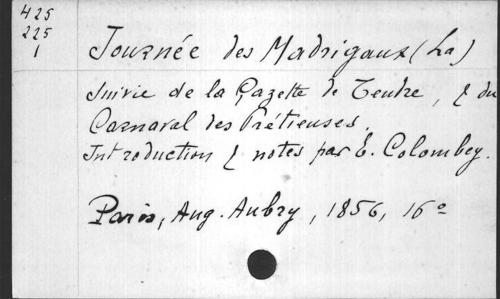 425
225
1
Journée des Madrigaux (La)
Suivie de la Gazette de Tendre, & du
Carnaval des Prétieuses.
Introduction & notes par E. Colombey.
Paris, Aug. Aubry, 1856, 16º